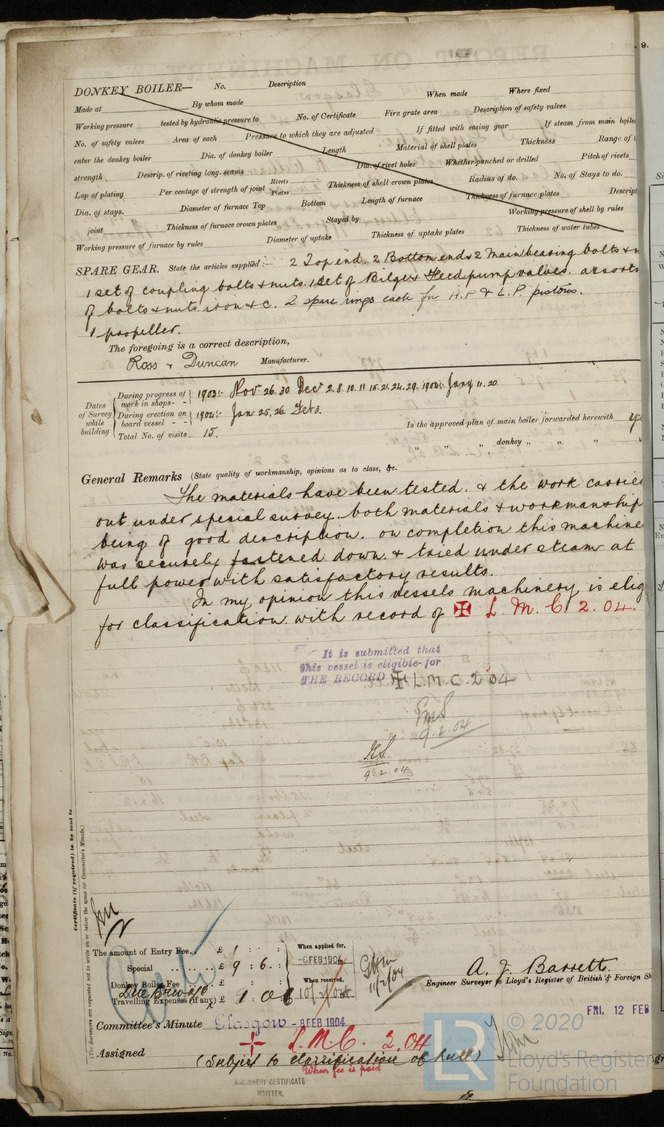 9.
DONKEY BOILER— No. Description
Made at By whom made When made Where fixed
Working pressure tested by hydraulic pressure to No. of Certificate Fire grate area Description of safety valves
No. of safety valves Area of each Pressure to which they are adjusted If fitted with easing gear If steam from main boile
enter the donkey boiler Dia. of donkey boiler Length Material of shell plates Thickness Range of
strength Descrip. of riveting long. seams Dia. of rivet holes Whether punched or drilled Pitch of rivets
Lap of plating Per centage of strength of joint Rivets Plates Thickness of shell crown plates Radius of do. No. of Stays to do.
Dia. of stays. Diameter of furnace Top Bottom Length of furnace Thickness of furnace plates Descript
joint Thickness of furnace crown plates Stayed by Working pressure of shell by rules
Working pressure of furnace by rules Diameter of uptake Thickness of uptake plates Thickness of water tubes
SPARE GEAR. State the articles supplied:— 2 Top end. 2 Bottom end & 2 Main bearing bolts & n
1 set of coupling bolts & nuts. 1 set of Bilge & Feed pump valves. assort
of bolts & nuts. iron & c. 2 spare rings each for H.P & L.P. pistons.
1 propeller.
The foregoing is a correct description,
Ross & Duncan Manufacturer.
Dates of Survey while building
During progress of work in shops- - 1903:- Nov 26. 30 Dec 2. 8. 10. 11 15. 21. 24. 29. 1904:- Jany 11. 20.
During erection on board vessel - - 1904:- Jan 25. 26. Feb 3.
Total No. of visits 15. Is the approved plan of main boiler forwarded herewith
" " " donkey " " "
General Remarks (State quality of workmanship, opinions as to class, &c.
The materials have been tested. & the work carrie
out under special survey. both materials & workmanship
being of good description. on completion this machine
was securely fastened down. & tried under steam at
full power with satisfactory results.
In my opinion this vessels machinery is elig
for classification with record of ✠ L. M. C. 2. 04.
It is submitted that
this vessel is eligible for
THE RECORD ✠ L.M.C. 2.04
9.2.04
9.2.04
Certificate (if required) to be sent to
(The Surveyors are requested not to write on or below the space for Committee's Minute.)
The amount of Entry Fee.. £ 1 : : When applied for,
Special .. .. £ 9 : 6 : -8 FEB 1904
Donkey Boiler Fee .. .. £ : : When received,
Travelling Expenses (if any) £ 10/2/04
11/2/04
A. J. Barrett.
Engineer Surveyor to Lloyd's Register of British & Foreign Sh
Committee's Minute Glasgow - 8 FEB 1904
FRI. 12 FEB
Assigned ✠ L.M.C. 2.04
(Subject to classification of hull)
When fee is paid
MACHINERY CERTIFICATE
WRITTEN.
LR © 2020
Lloyd's Register
Foundation